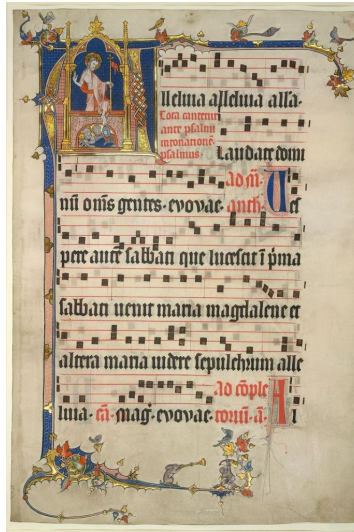 lleluia alleluia alla-
Tota cantetur
ante psalmi
intonationē
psalmus. Laudate domi
nū om̄s gentes. evovae. ad m̄. anth. Ves
pere autē sabbati que lucescit ī p̄ma
sabbati uenit maria magdalene et
altera maria uidere sepulchrum alle
luia. ad cōple
cā. mag. evovae. toriū. ā. Al